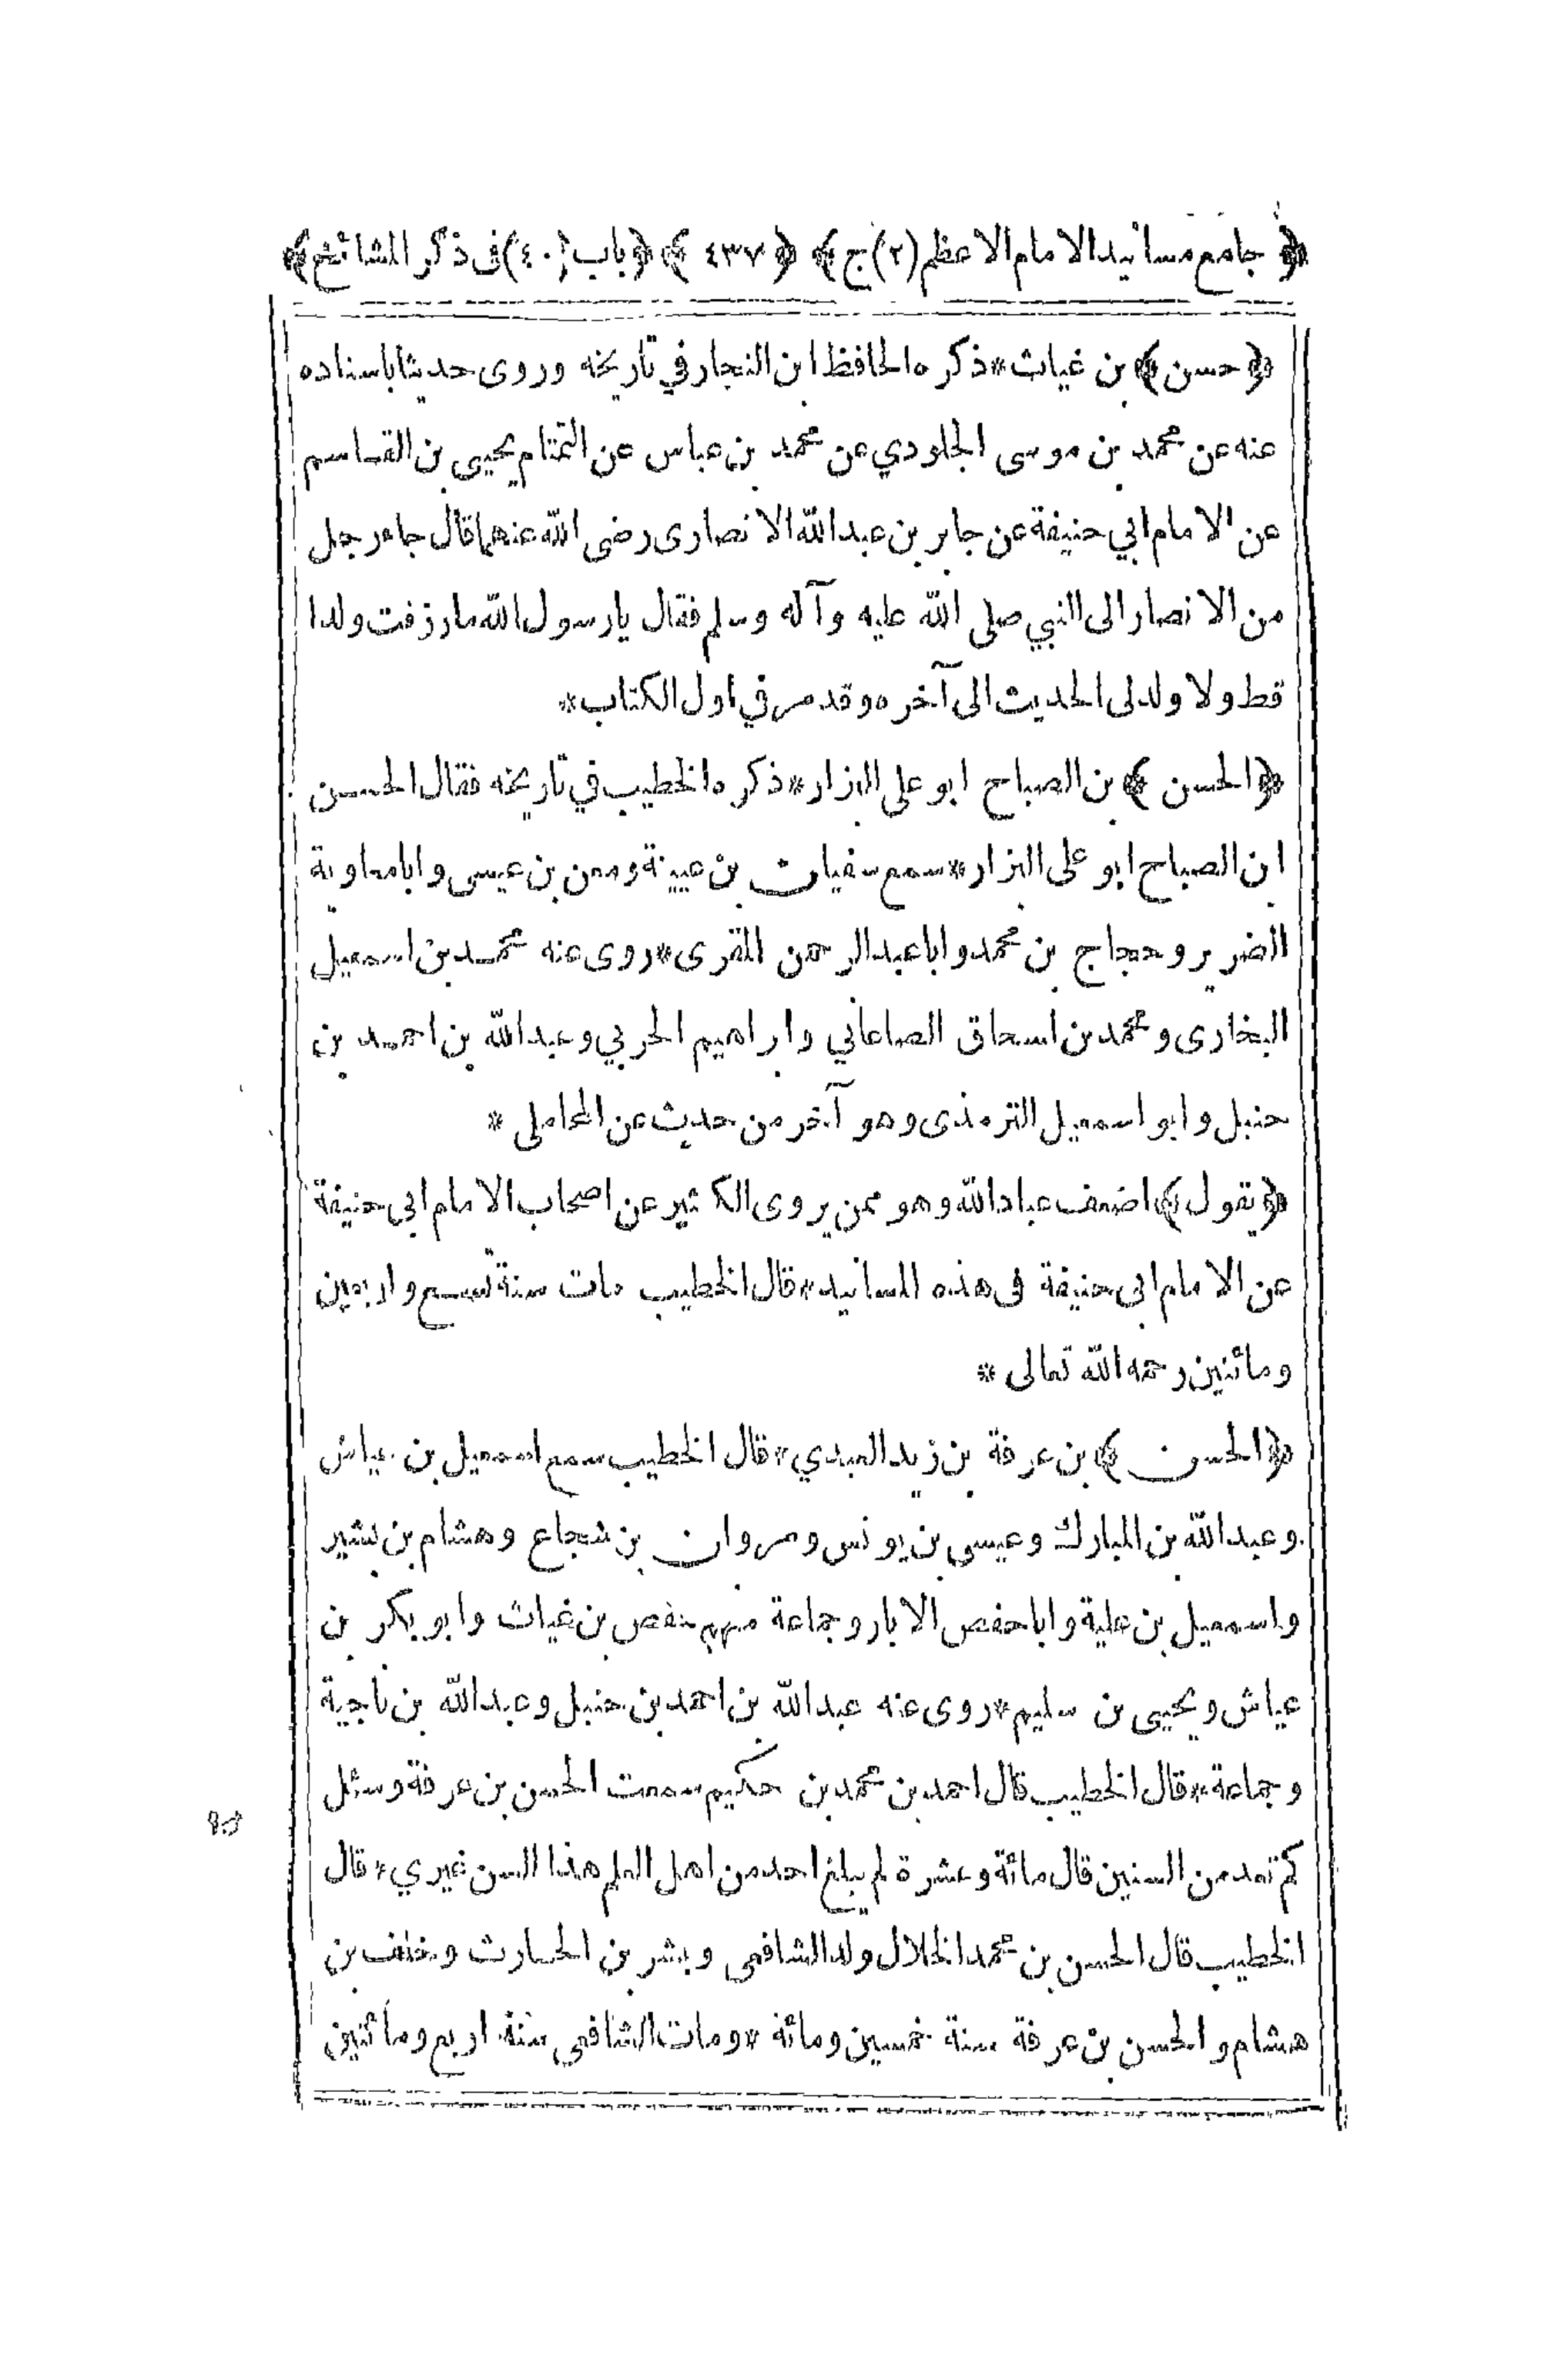 ﴿ جامع مسانيد الامام الاعظم (٢) ج ﴾ ﴿ ٤٣٧ ﴾ ﴿ باب (٤٠) فى ذكر المشائخ ﴾
﴿ حسن ﴾ بن غياث * ذكره الحافظ ابن النجار في تاريخه وروى حديثا باسناده
عنه عن محمد بن موسى الجلودي عن محمد بن عباس عن التمتام يحيى بن القاسم
عن الامام ابي حنيفة عن جابر بن عبد الله الانصارى رضى الله عنهما قال جاء رجل
من الانصار الى النبي صلى الله عليه وآله وسلم فقال يا رسول الله ما رزقت ولدا
قط ولا ولد لى الحديث الى آخره وقد مر في اول الكتاب *
﴿ الحسن ﴾ بن الصباح ابو على البزار * ذكره الخطيب في تاريخه فقال الحسن
ابن الصباح ابو على البزار * سمع سفيان بن عيينة ومعن بن عيسى وابا معاوية
الضرير وحجاج بن محمد وابا عبد الرحمن المقرى * روى عنه محمد بن اسمعيل
البخارى ومحمد بن اسحاق الصاغاني وابراهيم الحربي وعبد الله بن احمد بن
حنبل وابو اسمعيل الترمذى وهو آخر من حديث عن المحاملى *
﴿ يقول ﴾ اضعف عباد الله وهو ممن يروى الكثير عن اصحاب الامام ابى حنيفة
عن الامام ابى حنيفة فى هذه المسانيد * قال الخطيب مات سنة تسع واربعين
ومائتين رحمه الله تعالى *
﴿ الحسن ﴾ بن عرفة بن زيد العبدي * قال الخطيب سمع اسمعيل بن عياش
وعبد الله بن المبارك وعيسى بن يونس ومروان بن شجاع وهشام بن بشير
واسمعيل بن علية وابا حفص الابار وجماعة منهم حفص بن غياث وابو بكر بن
عياش ويحيى بن سليم * روى عنه عبد الله بن احمد بن حنبل وعبد الله بن ناجية
وجماعة * قال الخطيب قال احمد بن محمد بن حكيم سمعت الحسن بن عرفة وسئل
كم تعد من السنين قال مائة وعشرة لم يبلغ احد من اهل العلم هذا السن غيري * قال
الخطيب قال الحسن بن محمد الخلال ولد الشافعى وبشر بن الحارث وخلف بن
هشام والحسن بن عرفة سنة خمسين ومائة * ومات الشافعى سنة اربع ومائتين